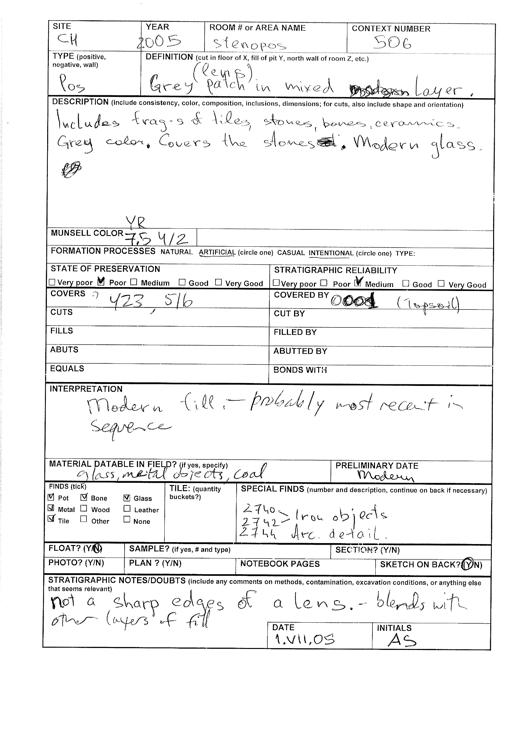 SITE YEAR ROOM # or AREA NAME CONTEXT NUMBER
CH 2005 stenopos 506
TYPE (positive, negative, wall) DEFINITION (cut in floor of X, fill of pit Y, north wall of room Z, etc.)
(lens)
Pos Grey patch in mixed Layer.
DESCRIPTION (Include consistency, color, composition, inclusions, dimensions; for cuts, also include shape and orientation)
Includes frag-s of tiles, stones, bones, ceramics.
Grey color. Covers the stones. Modern glass.
YR
MUNSELL COLOR 7,5 4/2
FORMATION PROCESSES NATURAL ARTIFICIAL (circle one) CASUAL INTENTIONAL (circle one) TYPE:
STATE OF PRESERVATION STRATIGRAPHIC RELIABILITY
Very poor Poor Medium Good Very Good Very poor Poor Medium Good Very Good
COVERS ? 423, 516 COVERED BY 0001 (Topsoil)
CUTS CUT BY
FILLS FILLED BY
ABUTS ABUTTED BY
EQUALS BONDS WITH
INTERPRETATION
Modern fill. - probably most recent in
sequence
MATERIAL DATABLE IN FIELD? (if yes, specify) PRELIMINARY DATE
glass, metal objects, coal Modern
FINDS (tick) TILE: (quantity buckets?) SPECIAL FINDS (number and description, continue on back if necessary)
Pot Bone Glass
Metal Wood Leather
Tile Other None
2740
2742 > Iron objects
2744 Arc. detail.
FLOAT? (Y/N) SAMPLE? (if yes, # and type) SECTION? (Y/N)
PHOTO? (Y/N) PLAN ? (Y/N) NOTEBOOK PAGES SKETCH ON BACK? (Y/N)
STRATIGRAPHIC NOTES/DOUBTS (include any comments on methods, contamination, excavation conditions, or anything else
that seems relevant)
not a sharp edges of a lens. - blends with
other layers of fill
DATE INITIALS
1.VII.05 AS